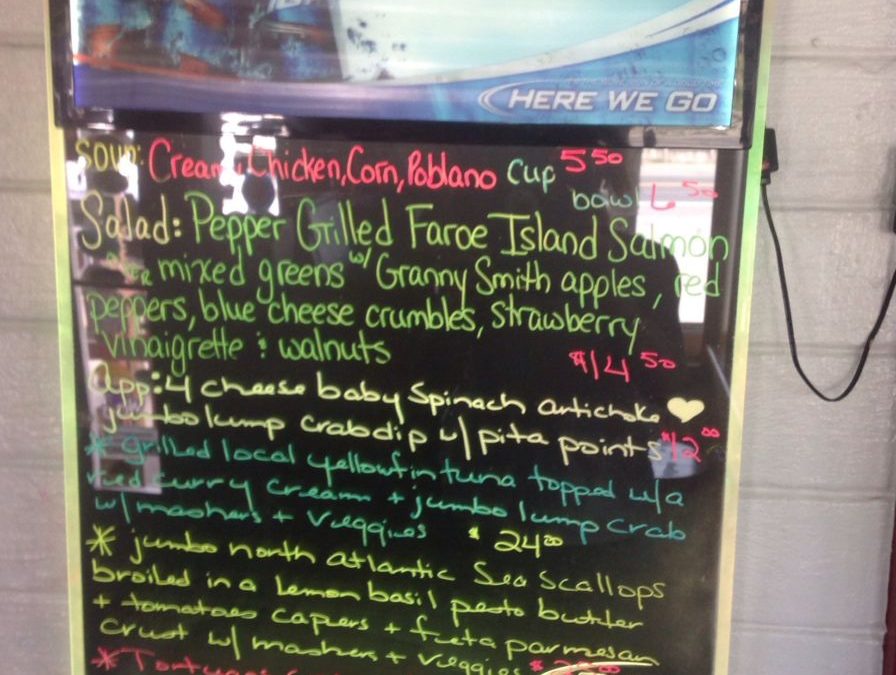 HERE WE GO
Soup: Cream, Chicken, Corn, Poblano cup 5 50
bowl 6 50
Salad: Pepper Grilled Faroe Island Salmon
over mixed greens w/ Granny Smith apples, red
peppers, blue cheese crumbles, strawberry
vinaigrette & walnuts $14 50
App: 4 cheese baby Spinach artichoke
jumbo lump crab dip w/ pita points $12 00
* grilled local yellowfin tuna topped w/ a
red curry cream + jumbo lump crab
w/ mashers + veggies $ 24 00
* jumbo north atlantic Sea Scallops
broiled in a lemon basil pesto butter
+ tomatoes capers + feta parmesan
crust w/ mashers + veggies $